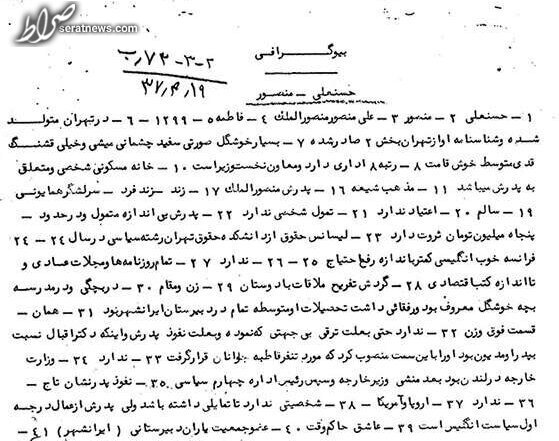 صراط
seratnews.com
بیوگرافی
۲-۳-۷۲ ب
۳۷/۴/۱۹
حسنعلی - منصور
۱ - حسنعلی ۲ - منصور ۳ - علی منصور منصورالملك ۴ - فاطمه ۵ - ۱۲۹۹ - ۶ - در تهران متولد
شده و شناسنامه او از تهران بخش ۲ صادر شده ۷ - بسیار خوشگل صورتی سفید چشمانی میشی و خیلی قشنگ
قدی متوسط خوش قامت ۸ - رتبه ۸ اداری دارد و معاون نخست وزیر است ۱۰ - خانه مسکونی شخصی و متعلق
به پدرش میباشد ۱۱ - مذهب شیعه ۱۶ - پدرش منصورالملك ۱۷ - زند - زند فرد - سرلشگر همایونی
۱۹ - سالم ۲۰ - اعتیاد ندارد ۲۱ - تمول شخصی ندارد ۲۲ - پدرش بی اندازه متمول و در حدود -
پنجاه میلیون تومان ثروت دارد ۲۳ - لیسانس حقوق از دانشکده حقوق تهران رشته سیاسی در سال ۲۴ - ۲۴
فرانسه خوب انگلیسی کمتر باندازه رفع احتیاج ۲۵ - ۲۶ - ندارد ۲۷ - تمام روزنامه ها و مجلات عادی و
تا اندازه کتب اقتصادی ۲۸ - گردش تفریح ملاقات با دوستان ۲۹ - زن و مقام ۳۰ - در بچگی و در مدرسه
بچه خوشگل معروف بود و رفقائی داشت تحصیلات او متوسطه تمام در دبیرستان ایرانشهر بود ۳۱ - همان -
قسمت فوق وزن ۳۲ - ندارد حتی بعلت ترقی بی جهتی که نموده و بعلت نفوذ پدرش و اینکه دکتر اقبال نسبت
بپدر او مدیون بود او را باین سمت منصوب کرد که مورد تنفر قاطبه جوانان قرار گرفت ۳۳ - ندارد ۳۴ - وزارت
خارجه در لندن بود بعد منشی وزیر خارجه و سپس رئیس اداره چهارم سیاسی ۳۵ - نفوذ پدر نشان تاج -
۳۶ - ندارد ۳۷ - اروپا و آمریکا ۳۸ - شخصیتی ندارد تا تمایلی داشته باشد ولی پدرش از عمال درجه
اول سیاست انگلیس است ۳۹ - عاشق حاکم وقت ۴۰ - عضو جمعیت یاران دبیرستانی ( ایرانشهر ) ۴۱ -